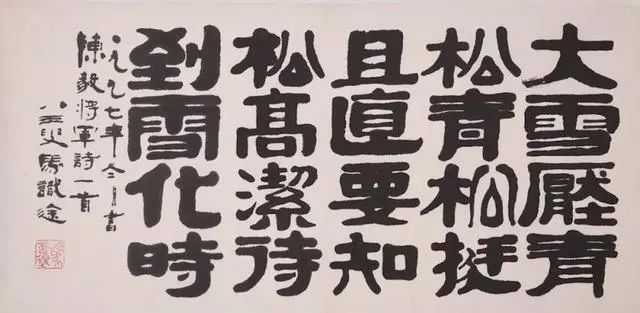 大雪壓青
松青松挺
且直要知
松高潔待
到雪化時
九七年書
陳毅將軍詩一首
叟馬識途